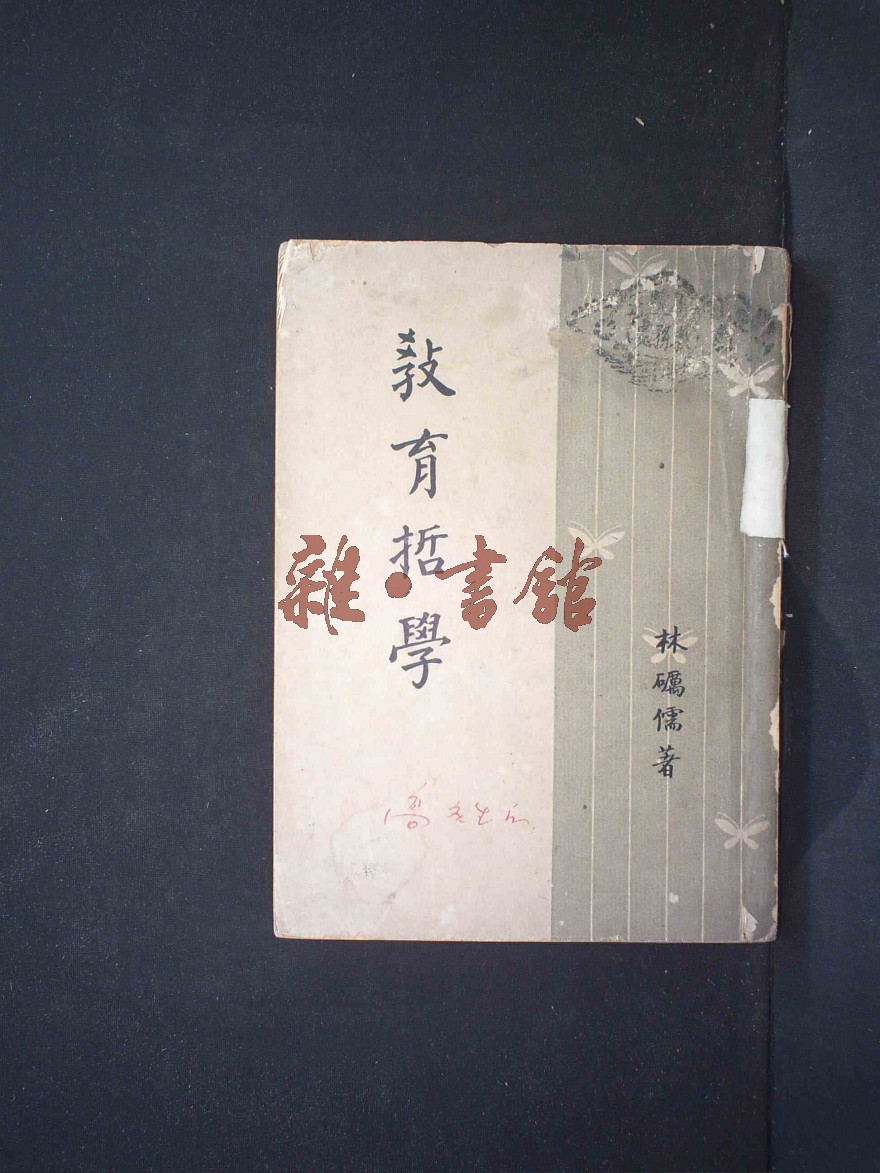 教育哲學
林礪儒著
雜·書館